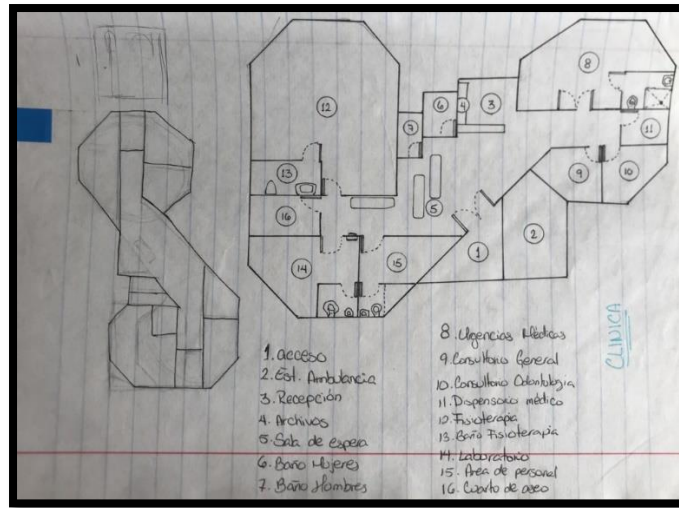 12
8
6
4
3
7
11
13
9
10
5
16
1
2
14
15
CLINICA
1. acceso
2. Est. Ambulancia
3. Recepción
4. Archivos
5. Sala de espera
6. Baño Mujeres
7. Baño Hombres
8. Urgencias Médicas
9. Consultorio General
10. Consultorio Odontologia
11. Dispensario médico
12. Fisioterapia
13. Baño Fisioterapia
14. Laboratorio
15. Area de personal
16. Cuarto de aseo